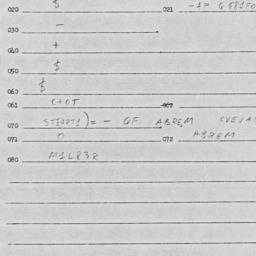 020 $ 021
030 -
040 +
050 $
060 $
061 C+OT 062
070 START1) = - QF ABREM (VEJA
071 0 072 ABREM
080 M1L83R